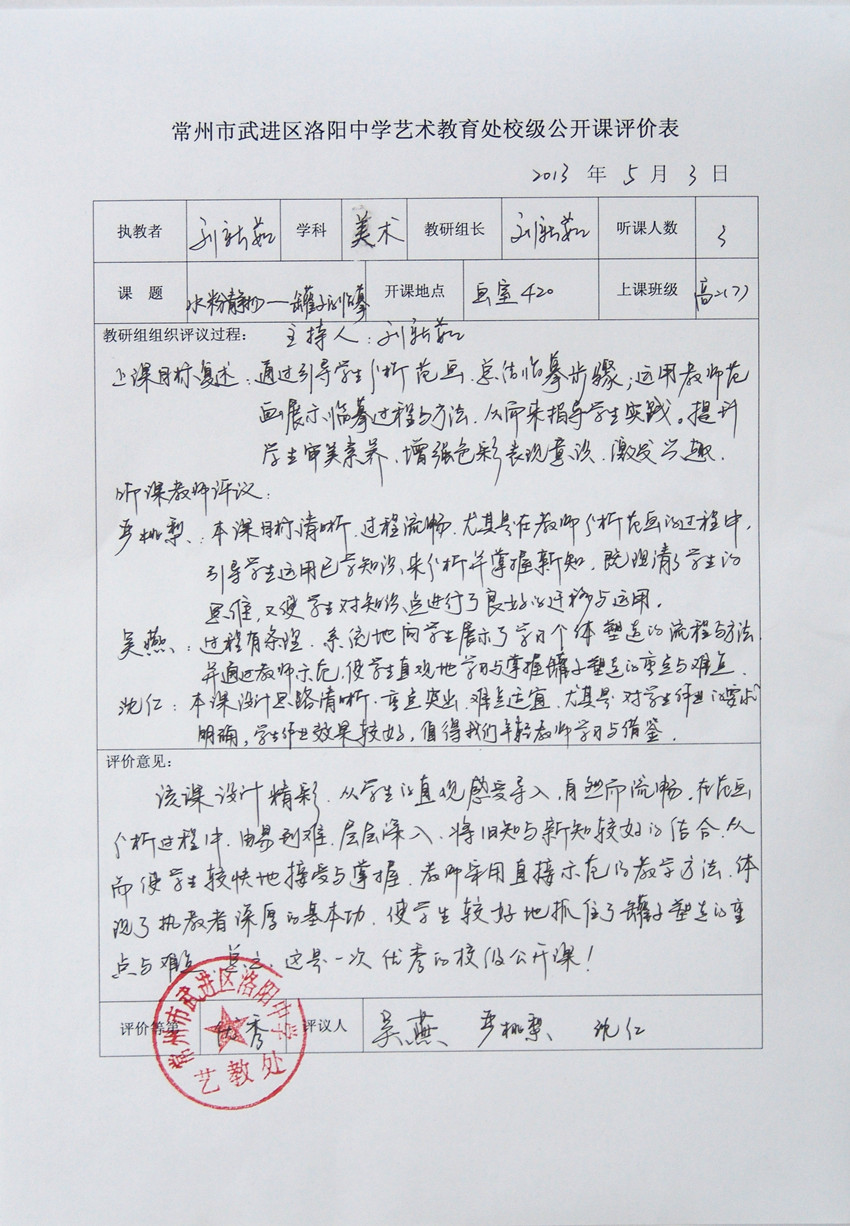 常州市武进区洛阳中学艺术教育处校级公开课评价表
2013 年 5 月 3 日
执教者 刘新茹 学科 美术 教研组长 刘新茹 听课人数 3
课 题 水粉静物—罐子的临摹 开课地点 画室420 上课班级 高二(7)
教研组组织评议过程: 主持人:刘新茹
上课目标复述:通过引导学生分析范画、总结临摹步骤;运用教师范
画展示临摹过程与方法,从而来指导学生实践。提升
学生审美素养、增强色彩表现意识、激发兴趣.
听课教师评议:
严桃梨:本课目标清晰、过程流畅.尤其是在教师分析范画的过程中,
引导学生运用已学知识、来分析并掌握新知.既理清了学生的
思维,又使学生对知识点进行了良好的迁移与运用.
吴燕:过程有条理.系统地向学生展示了学习个体塑造的流程与方法.
并通过教师示范,使学生直观地学习与掌握罐子塑造的重点与难点.
沈仁:本课设计思路清晰.重点突出.难点适宜.尤其是对学生作业的要求
明确,学生作业效果较好,值得我们年轻教师学习与借鉴.
评价意见:
该课设计精彩.从学生的直观感受导入,自然而流畅.在范画
分析过程中.由易到难.层层深入.将旧知与新知较好的结合.从
而使学生较快地接受与掌握.教师采用直接示范的教学方法.体
现了执教者深厚的基本功.使学生较好地抓住了罐子塑造的重
点与难点.总之,这是一次优秀的校级公开课!
评价等第 优秀 评议人 吴燕 严桃梨 沈仁
常州市武进区洛阳中学
艺教处